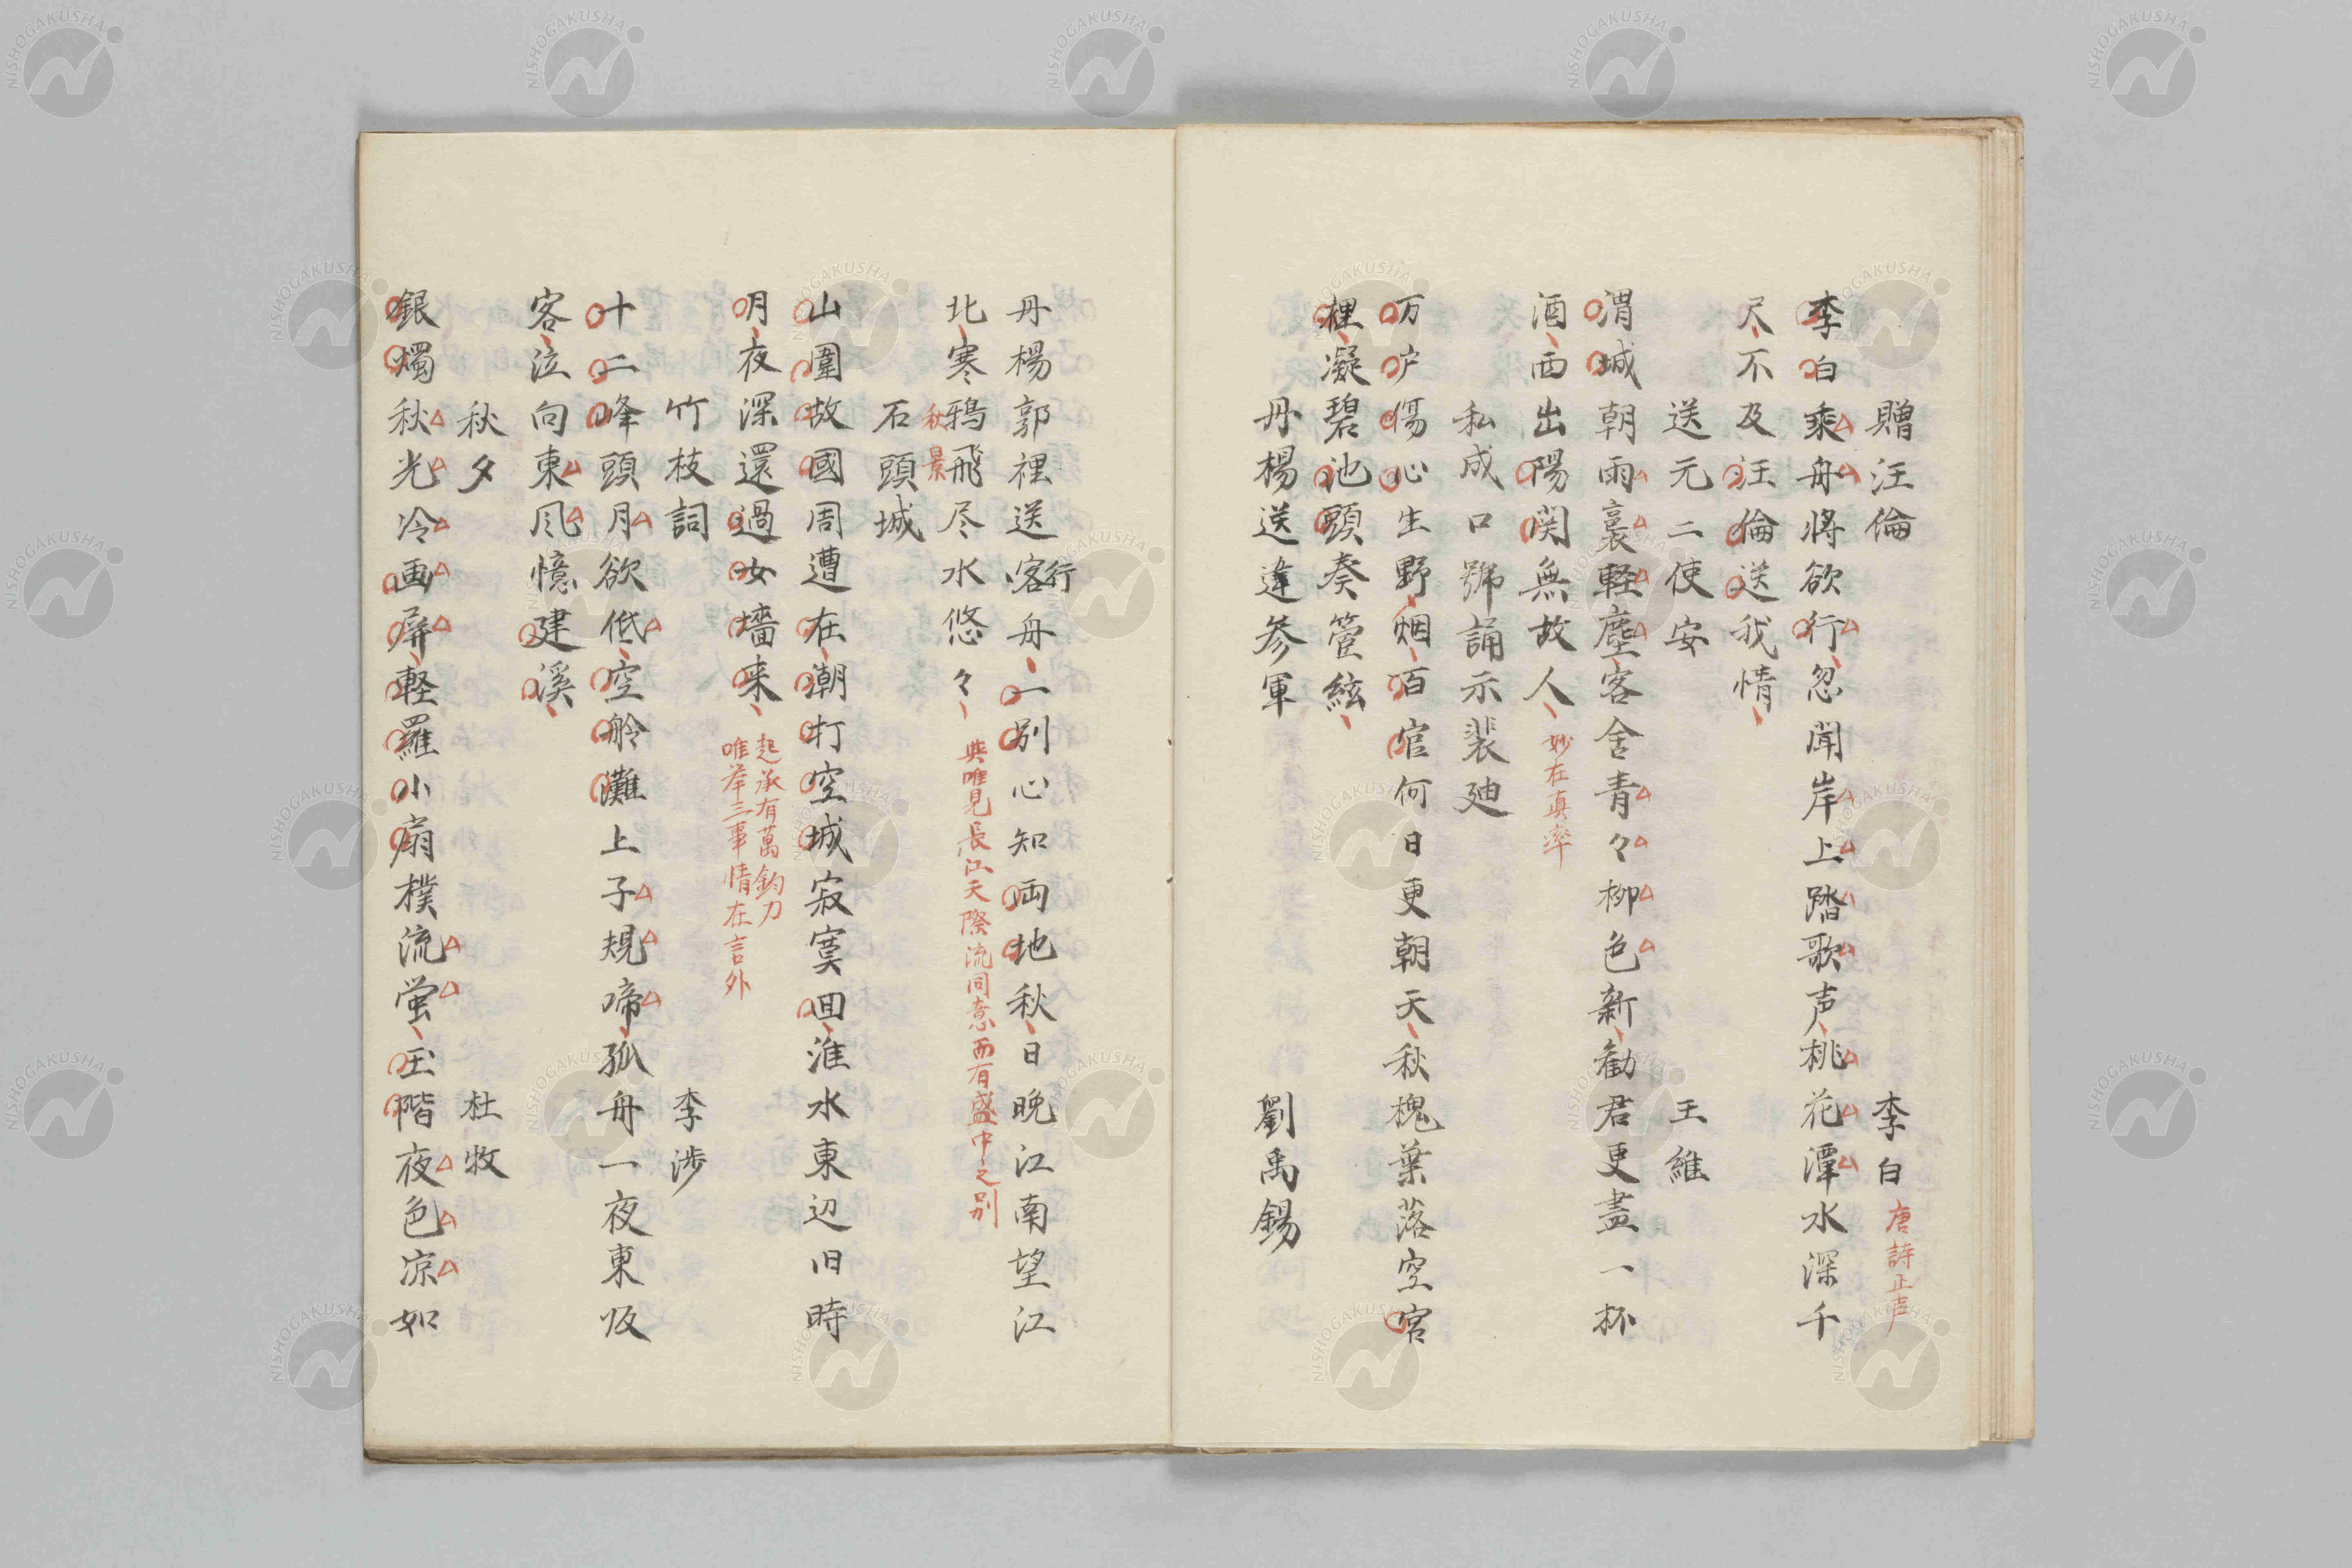 贈汪倫 李白 唐詩正声
李白乘舟将欲行忽聞岸上踏歌声桃花潭水深千
尺不及汪倫送我情
送元二使安 王維
渭城朝雨裛軽塵客舎青々柳色新勧君更盡一杯
酒西出陽関無故人 妙在真率
私成口號誦示裴迪
万户傷心生野烟百官何日更朝天秋槐葉落空宮
裡凝碧池頭奏管絃
丹楊送違参軍 劉禹錫
丹楊郭裡送客行舟一別心知両地秋日晩江南望江
北寒鴉飛尽水悠々 秋景 與唯見長江天際流同意而有盛中之別
石頭城
山圍故國周遭在潮打空城寂寞回淮水東辺旧時
月夜深還過女墻来 起承有萬鈞力
唯挙三事情在言外
竹枝詞 李渉
十二峰頭月欲低空舲灘上子規啼孤舟一夜東皈
客泣向東風憶建溪
秋夕 杜牧
銀燭秋光冷画屏軽羅小扇樸流蛍玉階夜色凉如
NISHOGAKUSHA